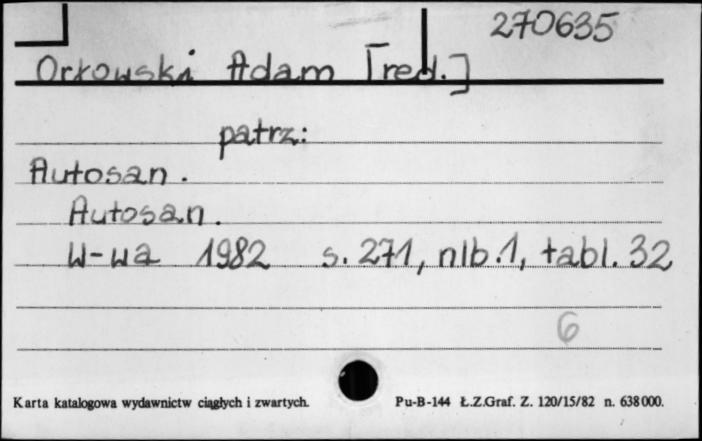 270635
Orłowski Adam [red.]
patrz:
Autosan.
Autosan.
W-wa 1982 s. 271, nlb. 1, tabl. 32
6
Karta katalogowa wydawnictw ciągłych i zwartych. Pu-B-144 Ł.Z.Graf. Z. 120/15/82 n. 638000.